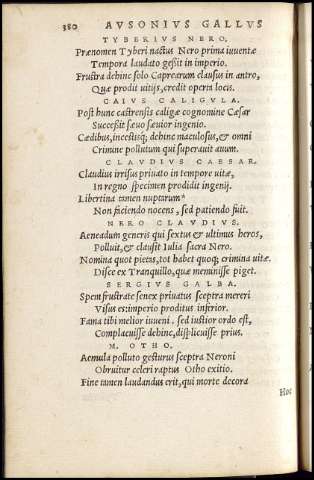 380 AVSONIVS GALLVS
TYBERIVS NERO.
Prænomen Tyberi nactus Nero prima iuuentæ
Tempora laudato gessit in imperio.
Frustra debinc solo Caprearum clausus in antro,
Quæ prodit uitijs, credit operta locis.
CAIVS CALIGVLA.
Post hunc castrensis caligæ cognomine Cæsar
Successit sæuo sæuior ingenio.
Cædibus, incestisq; debinc maculosus, & omni
Crimine pollutum qui superauit auum.
CLAVDIVS CAESAR.
Claudius irrisus priuato in tempore uitæ,
In regno specimen prodidit ingenij.
Libertina tamen nuptarum*
Non faciendo nocens, sed patiendo fuit.
NERO CLAVDIVS.
Aeneadum generis qui sextus & ultimus heros,
Polluit, & clausit Iulia sacra Nero.
Nomina quot pietas, tot habet quoq; crimina uitæ.
Disce ex Tranquillo, quæ meminisse piget.
SERGIVS GALBA.
Spem frustrate senex priuatus sceptra mereri
Visus es imperio proditus inferior.
Fama tibi melior iuueni, sed iustior ordo est,
Complacuisse debinc, displicuisse prius.
M. OTHO.
Aemula polluto gesturus sceptra Neroni
Obruitur celeri raptus Otho exitio.
Fine tamen laudandus erit, qui morte decora
Hoc